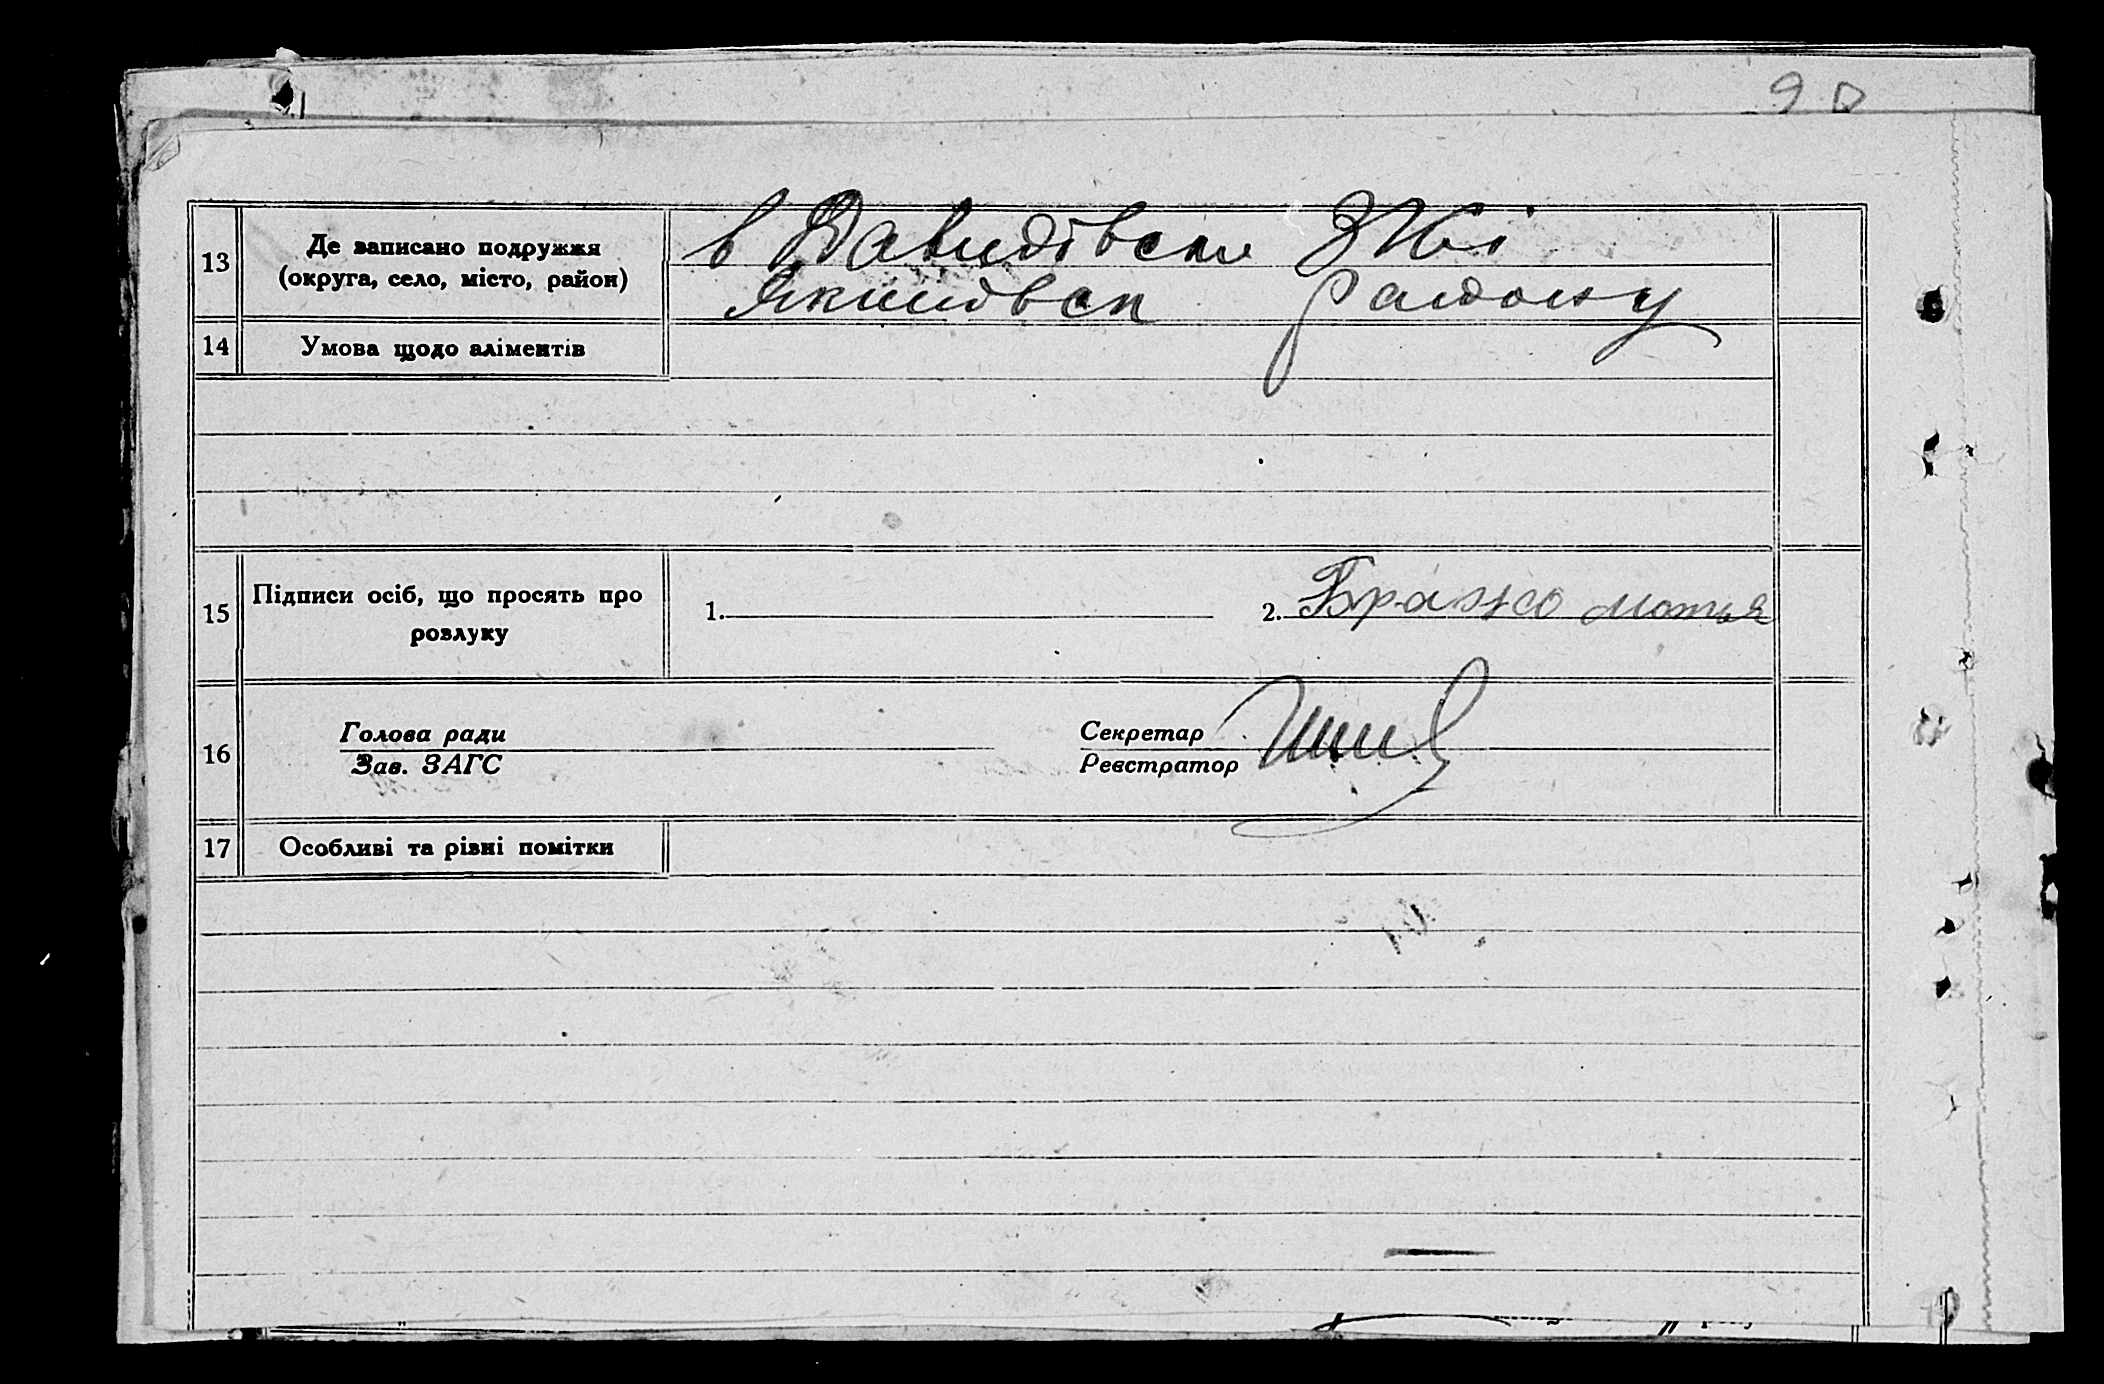 90
13 Де записано подружжя в Давидівськ
(округа, село, місто, район) Якимівськ району
14 Умова щодо аліментів
15 Підписи осіб, що просять про 1. 2. Бражко Мотя
розлуку
16 Голова ради Секретар
Зав. ЗАГС Реєстратор
17 Особливі та різні помітки